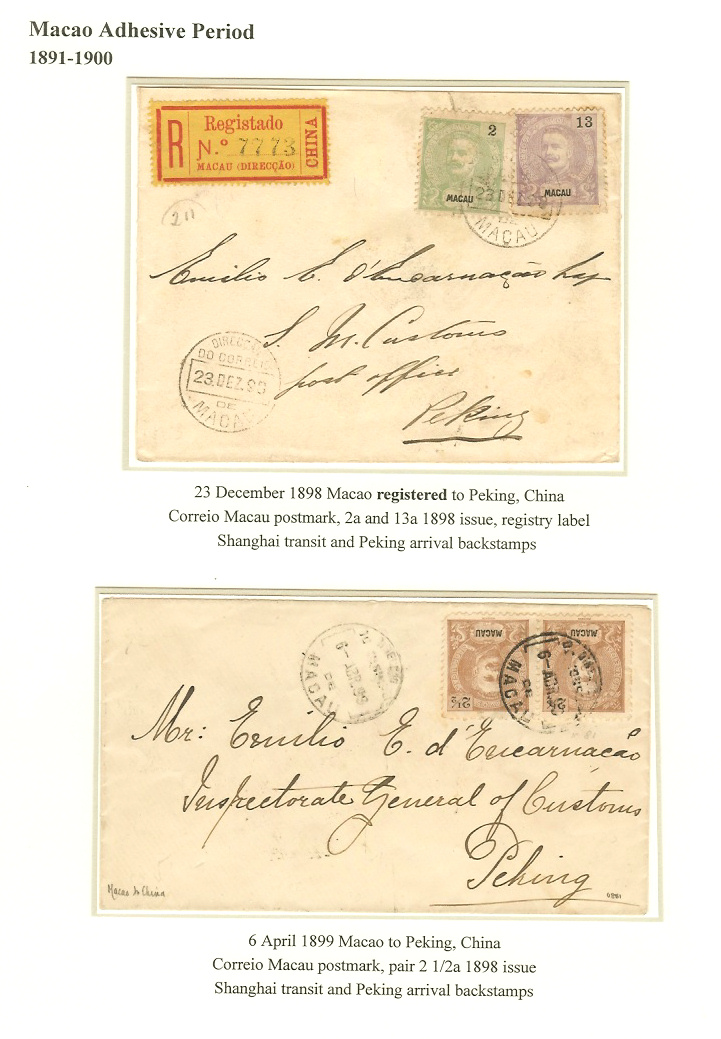 Macao Adhesive Period
1891-1900
R
Registado
N.º 7773
MACAU (DIRECÇÃO)
CHINA
2
MACAU
13
MACAU
23 DEZ
DE
MACAU
211
Emilio E. d'Encarnação Esq
I. M. Customs
post office
Peking
DIRECÇÃO
DO CORREIO
23.DEZ.98
DE
MACAU
23 December 1898 Macao registered to Peking, China
Correio Macau postmark, 2a and 13a 1898 issue, registry label
Shanghai transit and Peking arrival backstamps
MACAU
2½
MACAU
2½
6-ABR.99
DE
MACAU
6-ABR.99
DE
MACAU
Mr: Emilio E. d'Encarnação
Inspectorate General of Customs
Peking
Macao to China
6 April 1899 Macao to Peking, China
Correio Macau postmark, pair 2 1/2a 1898 issue
Shanghai transit and Peking arrival backstamps